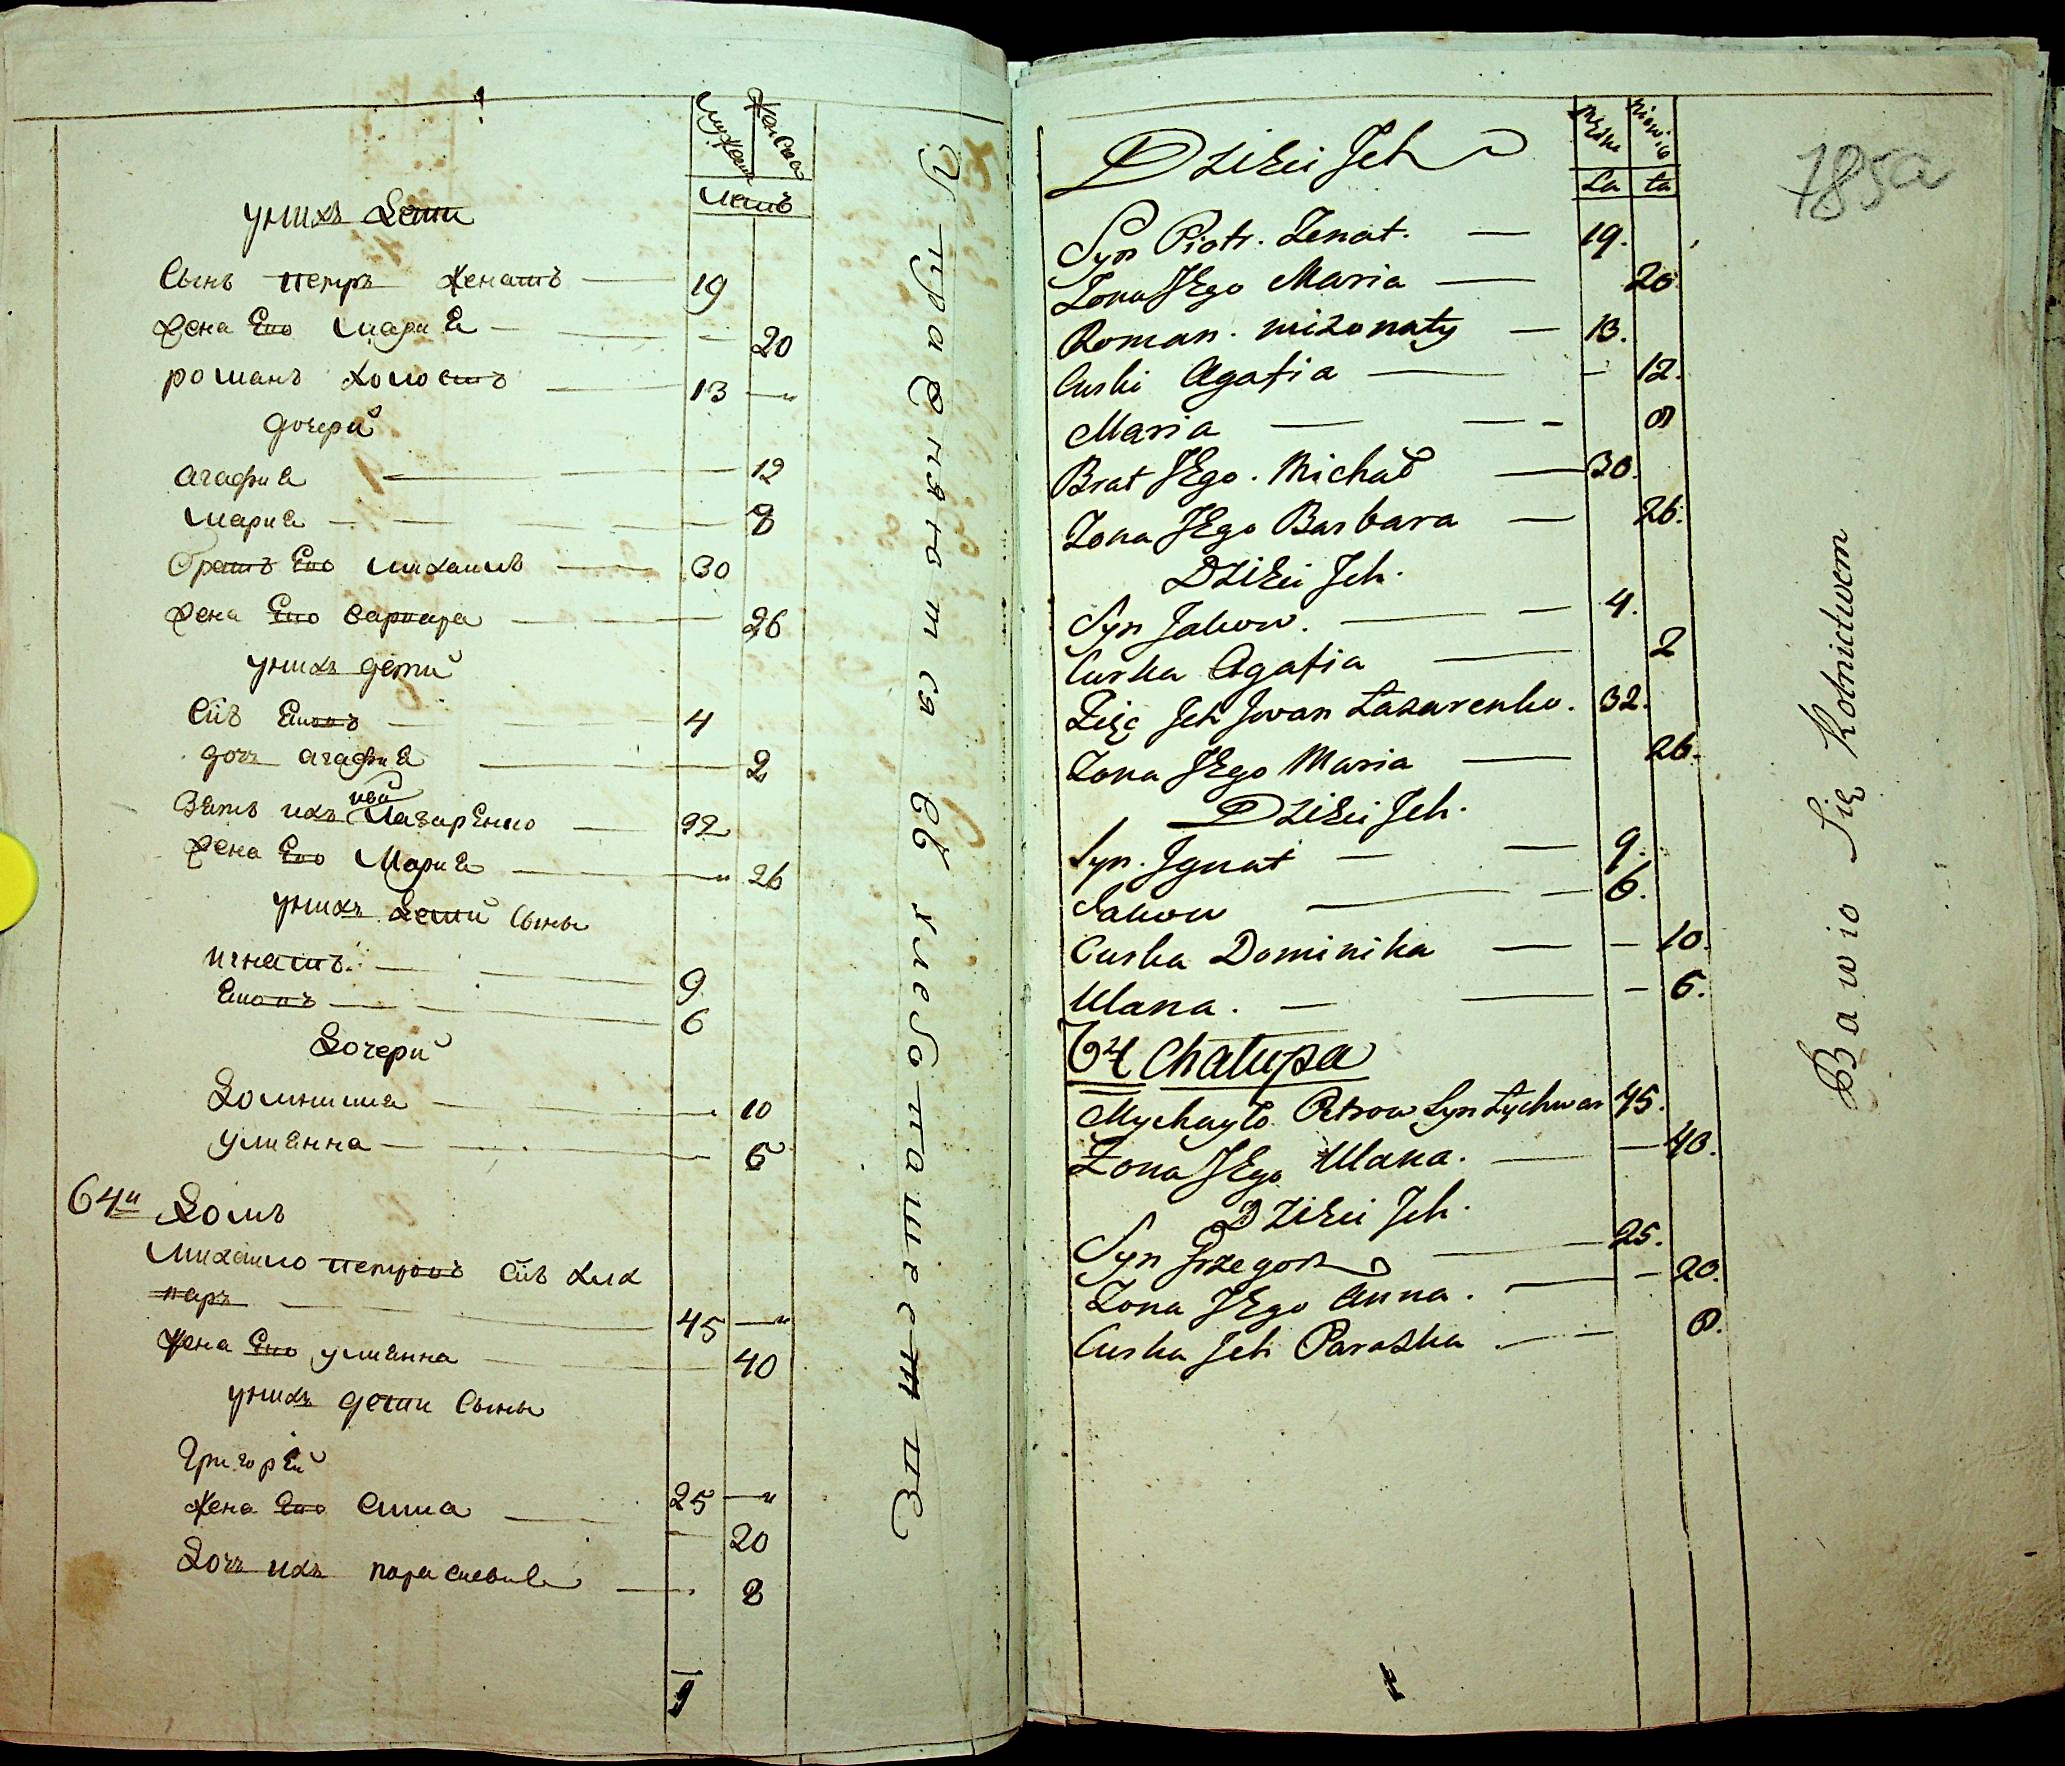 мужеска женска
летъ
у нихъ дети
Сынъ петръ женатъ — 19
жена Его мариа — 20
романъ холостъ — 13 —"
дочери
агафиа — 12
мариа — 8
братъ Его михаилъ — 30
жена Его варвара — 26
у нихъ дети
Сiъ Яковъ — 4
дочъ агафиа — 2
Зять ихъ ива Лазаренко — 32
жена Его Мариа — " 26
у нихъ дети Сыны
игнатъ — 9
Яковъ — 6
дочери
домникиа — 10
улианна — 6
64й домъ
Михаило петровъ Сiъ
— 45 —"
жена Его улианна — 40
у нихъ дети Сыны
Григорей
25 —"
жена Его анна — 20
дочъ ихъ параскевиа — 8
Упражняются въ хлебопашестве
785a
Dzieci Jch
Męzka Niewia
La ta
Syn Piotr. Żenat. — 19.
Żona JEgo Maria — 20
Roman. nieżonaty — 13.
Curki Agafia — 12.
Maria — 8
Brat JEgo. Michał — 30.
Żona JEgo Barbara — 26.
Dzieci Jch.
Syn Jakow. — 4.
Curka Agafia — 2
Zięc Jch Jwan Łazarenko. 32.
Żona JEgo Maria — 26.
Dzieci Jch.
Syn. Jgnat — 9.
Jakow — 6.
Curka Dominika — 10.
Ulana. — 6.
64 Chałupa
Mychayło Petrow Syn 45.
Żona JEgo Ulana. — 40.
Dzieci Jch.
Syn Grzegorz — 25.
Żona JEgo Anna. — 20.
Curka Jch Paraska — 8.
Bawio Się Rolnictwem